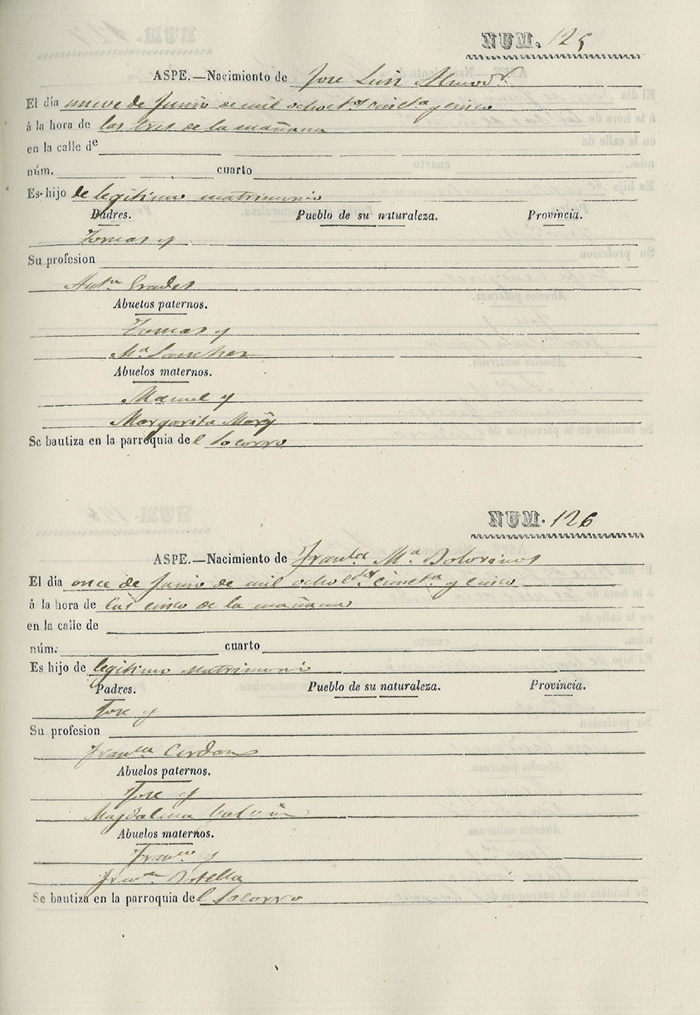 NUM. 125
ASPE.—Nacimiento de Jose Luis
El día nueve de Junio de mil ochotos cincta y cinco
á la hora de las tres de la mañana
en la calle de
núm. cuarto
Es hijo de legitimo matrimonio
Padres. Pueblo de su naturaleza. Provincia.
Tomas y
Su profesion
Anta Grades
Abuelos paternos.
Tomas y
Ma Sanchez
Abuelos maternos.
Manuel y
Margarita
Se bautiza en la parroquia del Socorro
NUM. 126
ASPE.—Nacimiento de Franca Ma
El día once de Junio de mil ochotos cincta y cinco
á la hora de las cinco de la mañana
en la calle de
núm. cuarto
Es hijo de legitimo matrimoni
Padres. Pueblo de su naturaleza. Provincia.
Jose y
Su profesion
Franca Cerdan
Abuelos paternos.
Jose y
Magdalena
Abuelos maternos.
Franco y
Botella
Se bautiza en la parroquia del Socorro